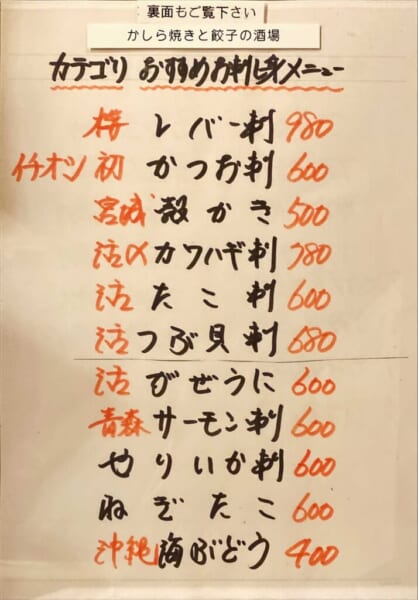 裏面もご覧下さい
かしら焼きと餃子の酒場
カテゴリ おすすめお刺し身メニュー
桜 レバー刺 980
イチオシ 初 かつお刺 600
宮城 殻かき 500
活〆 カワハギ刺 780
活 たこ刺 600
活 つぶ貝刺 680
活 がぜうに 600
青森 サーモン刺 600
やりいか刺 600
ねぎたこ 600
沖縄 海ぶどう 400